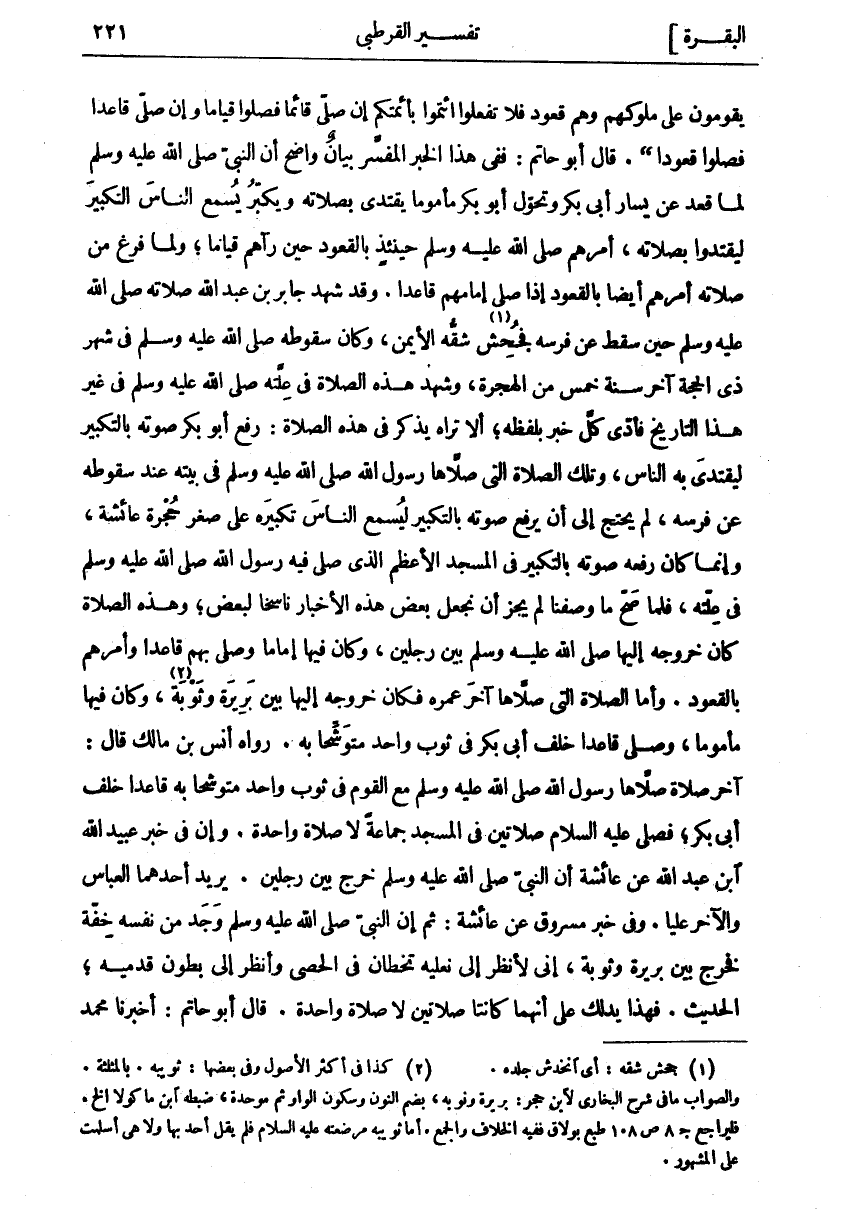 البقـــرة ]
تفســـير القرطبى
٢٢١
يقومون على ملوكهم وهم قعود فلا تفعلوا ائتموا بأئمتكم إن صلّى قائما فصلوا قياما و إن صلّى قاعدا
فصلوا قعودا“ . قال أبو حاتم : ففى هذا الخبر المفسَّر بيانٌ واضح أن النبىّ صلى الله عليه وسلم
لمـا قعد عن يسار أبى بكر وتحوّل أبو بكر مأموما يقتدى بصلاته و يكبّرُ يُسمع النـاسَ التكبيرَ
ليقتدوا بصلاته ، أمرهم صلى الله عليــه وسلم حينئذٍ بالقعود حين رآهم قياما ؛ ولمـا فرغ من
صلاته أمرهم أيضا بالقعود إذا صلى إمامهم قاعدا . وقد شهد جابر بن عبد الله صلاته صلى الله
عليه وسلم حين سقط عن فرسه فجُحِش (١) شقُّه الأيمن ، وكان سقوطه صلى الله عليه وســلم فى شهر
ذى الحجة آخر ســنة خمس من الهجرة ، وشهد هــذه الصلاة فى علّته صلى الله عليه وسلم فى غير
هــذا التاريخ فأدّى كلَّ خبر بلفظه ؛ ألا تراه يذكر فى هذه الصلاة : رفع أبو بكر صوته بالتكبير
ليقتدىَ به الناس ، وتلك الصلاة التى صلّاها رسول الله صلى الله عليه وسلم فى بيته عند سقوطه
عن فرسه ، لم يحتج إلى أن يرفع صوته بالتكبير ليُسمع النــاسَ تكبيرَه على صغر حُجْرة عائشة ،
و إنمــا كان رفعه صوته بالتكبير فى المسجد الأعظم الذى صلى فيه رسول الله صلى الله عليه وسلم
فى علّته ، فلما صَحّ ما وصفنا لم يجز أن نجعل بعض هذه الأخبار ناسخا لبعض ؛ وهــذه الصلاة
كان خروجه إليها صلى الله عليــه وسلم بين رجلين ، وكان فيها إماما وصلى بهم قاعدا وأمرهم
بالقعود . وأما الصلاة التى صلّاها آخرَ عمره فكان خروجه إليها بين بَرِيرَة وثَوْبَة (٢) ، وكان فيها
مأموما ، وصــلى قاعدا خلف أبى بكر فى ثوب واحد متوَشِّحا به . رواه أنس بن مالك قال :
آخر صلاة صلّاها رسول الله صلى الله عليه وسلم مع القوم فى ثوب واحد متوشحا به قاعدا خلف
أبى بكر ؛ فصلى عليه السلام صلاتين فى المسجد جماعةً لا صلاة واحدة . و إن فى خبر عبيد الله
آبن عبد الله عن عائشة أن النبىّ صلى الله عليه وسلم خرج بين رجلين . يريد أحدهما العباس
والآخر عليا . وفى خبر مسروق عن عائشة : ثم إن النبىّ صلى الله عليه وسلم وَجَد من نفسه خِفّة
فخرج بين بريرة وثوبة ، إنى لأنظر إلى نعليه تخطان فى الحصى وأنظر إلى بطون قدميــه ؛
الحديث . فهذا يدلك على أنهما كانتا صلاتين لا صلاة واحدة . قال أبو حاتم : أخبرنا محمد
(١) جحش شقه : أى آنخدش جلده . (٢) كذا فى أكثر الأصول وفى بعضها : ثويبه . بالمثلثة .
والصواب مافى شرح البخارى لآبن حجر : بريرة ونوبه ، بضم النون وسكون الواو ثم موحدة ، ضبطه آبن ماكولا الخ .
فليراجع جـ ٨ ص ١٠٨ طبع بولاق ففيه الخلاف والجمع . أما ثويبه مرضعته عليه السلام فلم يقل أحد بها ولا هى أسلمت
على المشهور .